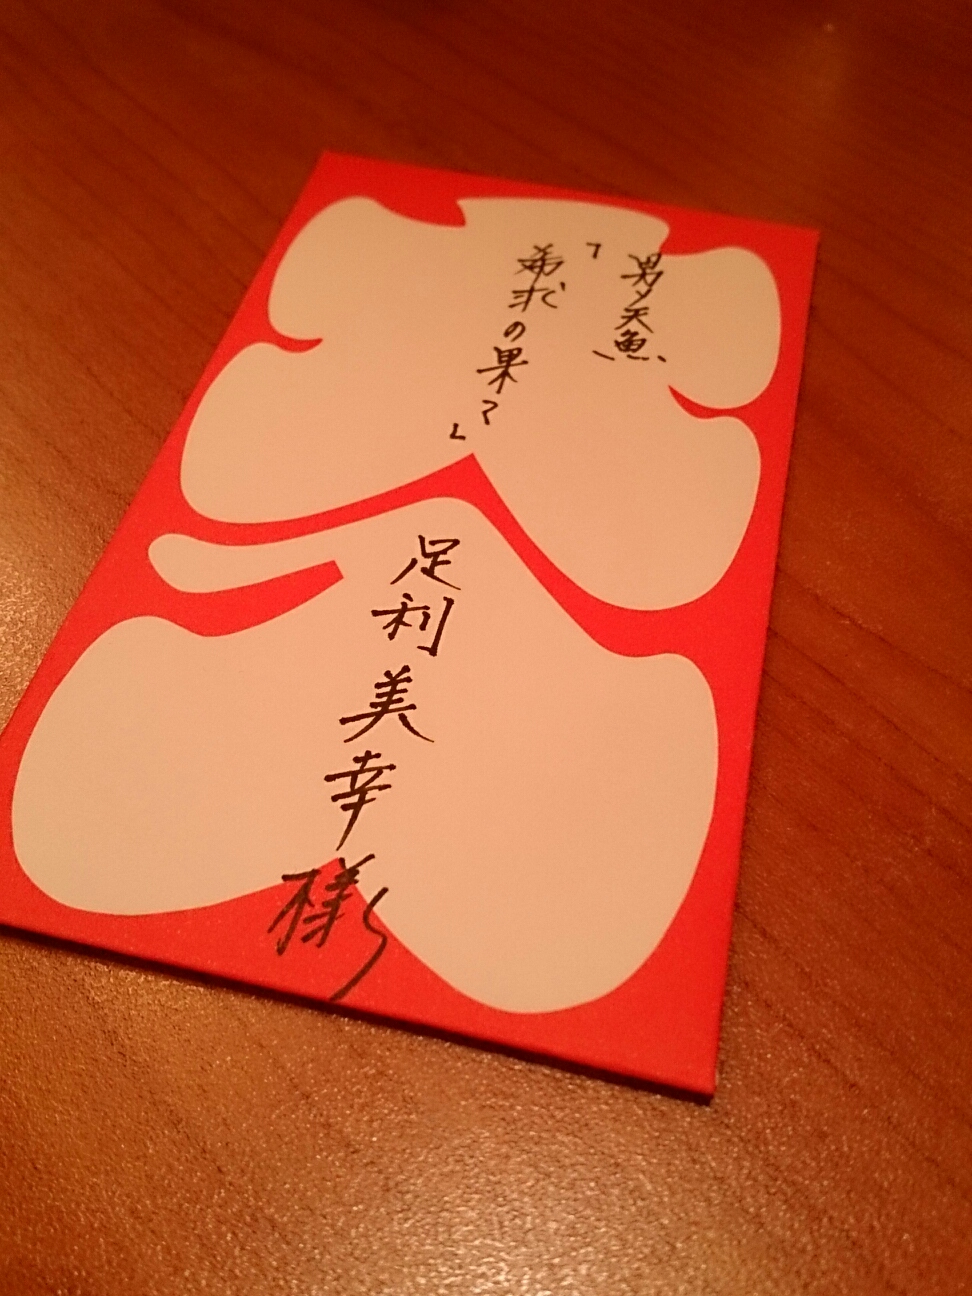 大入
男〆天魚
「希求の果て」
足利美幸様